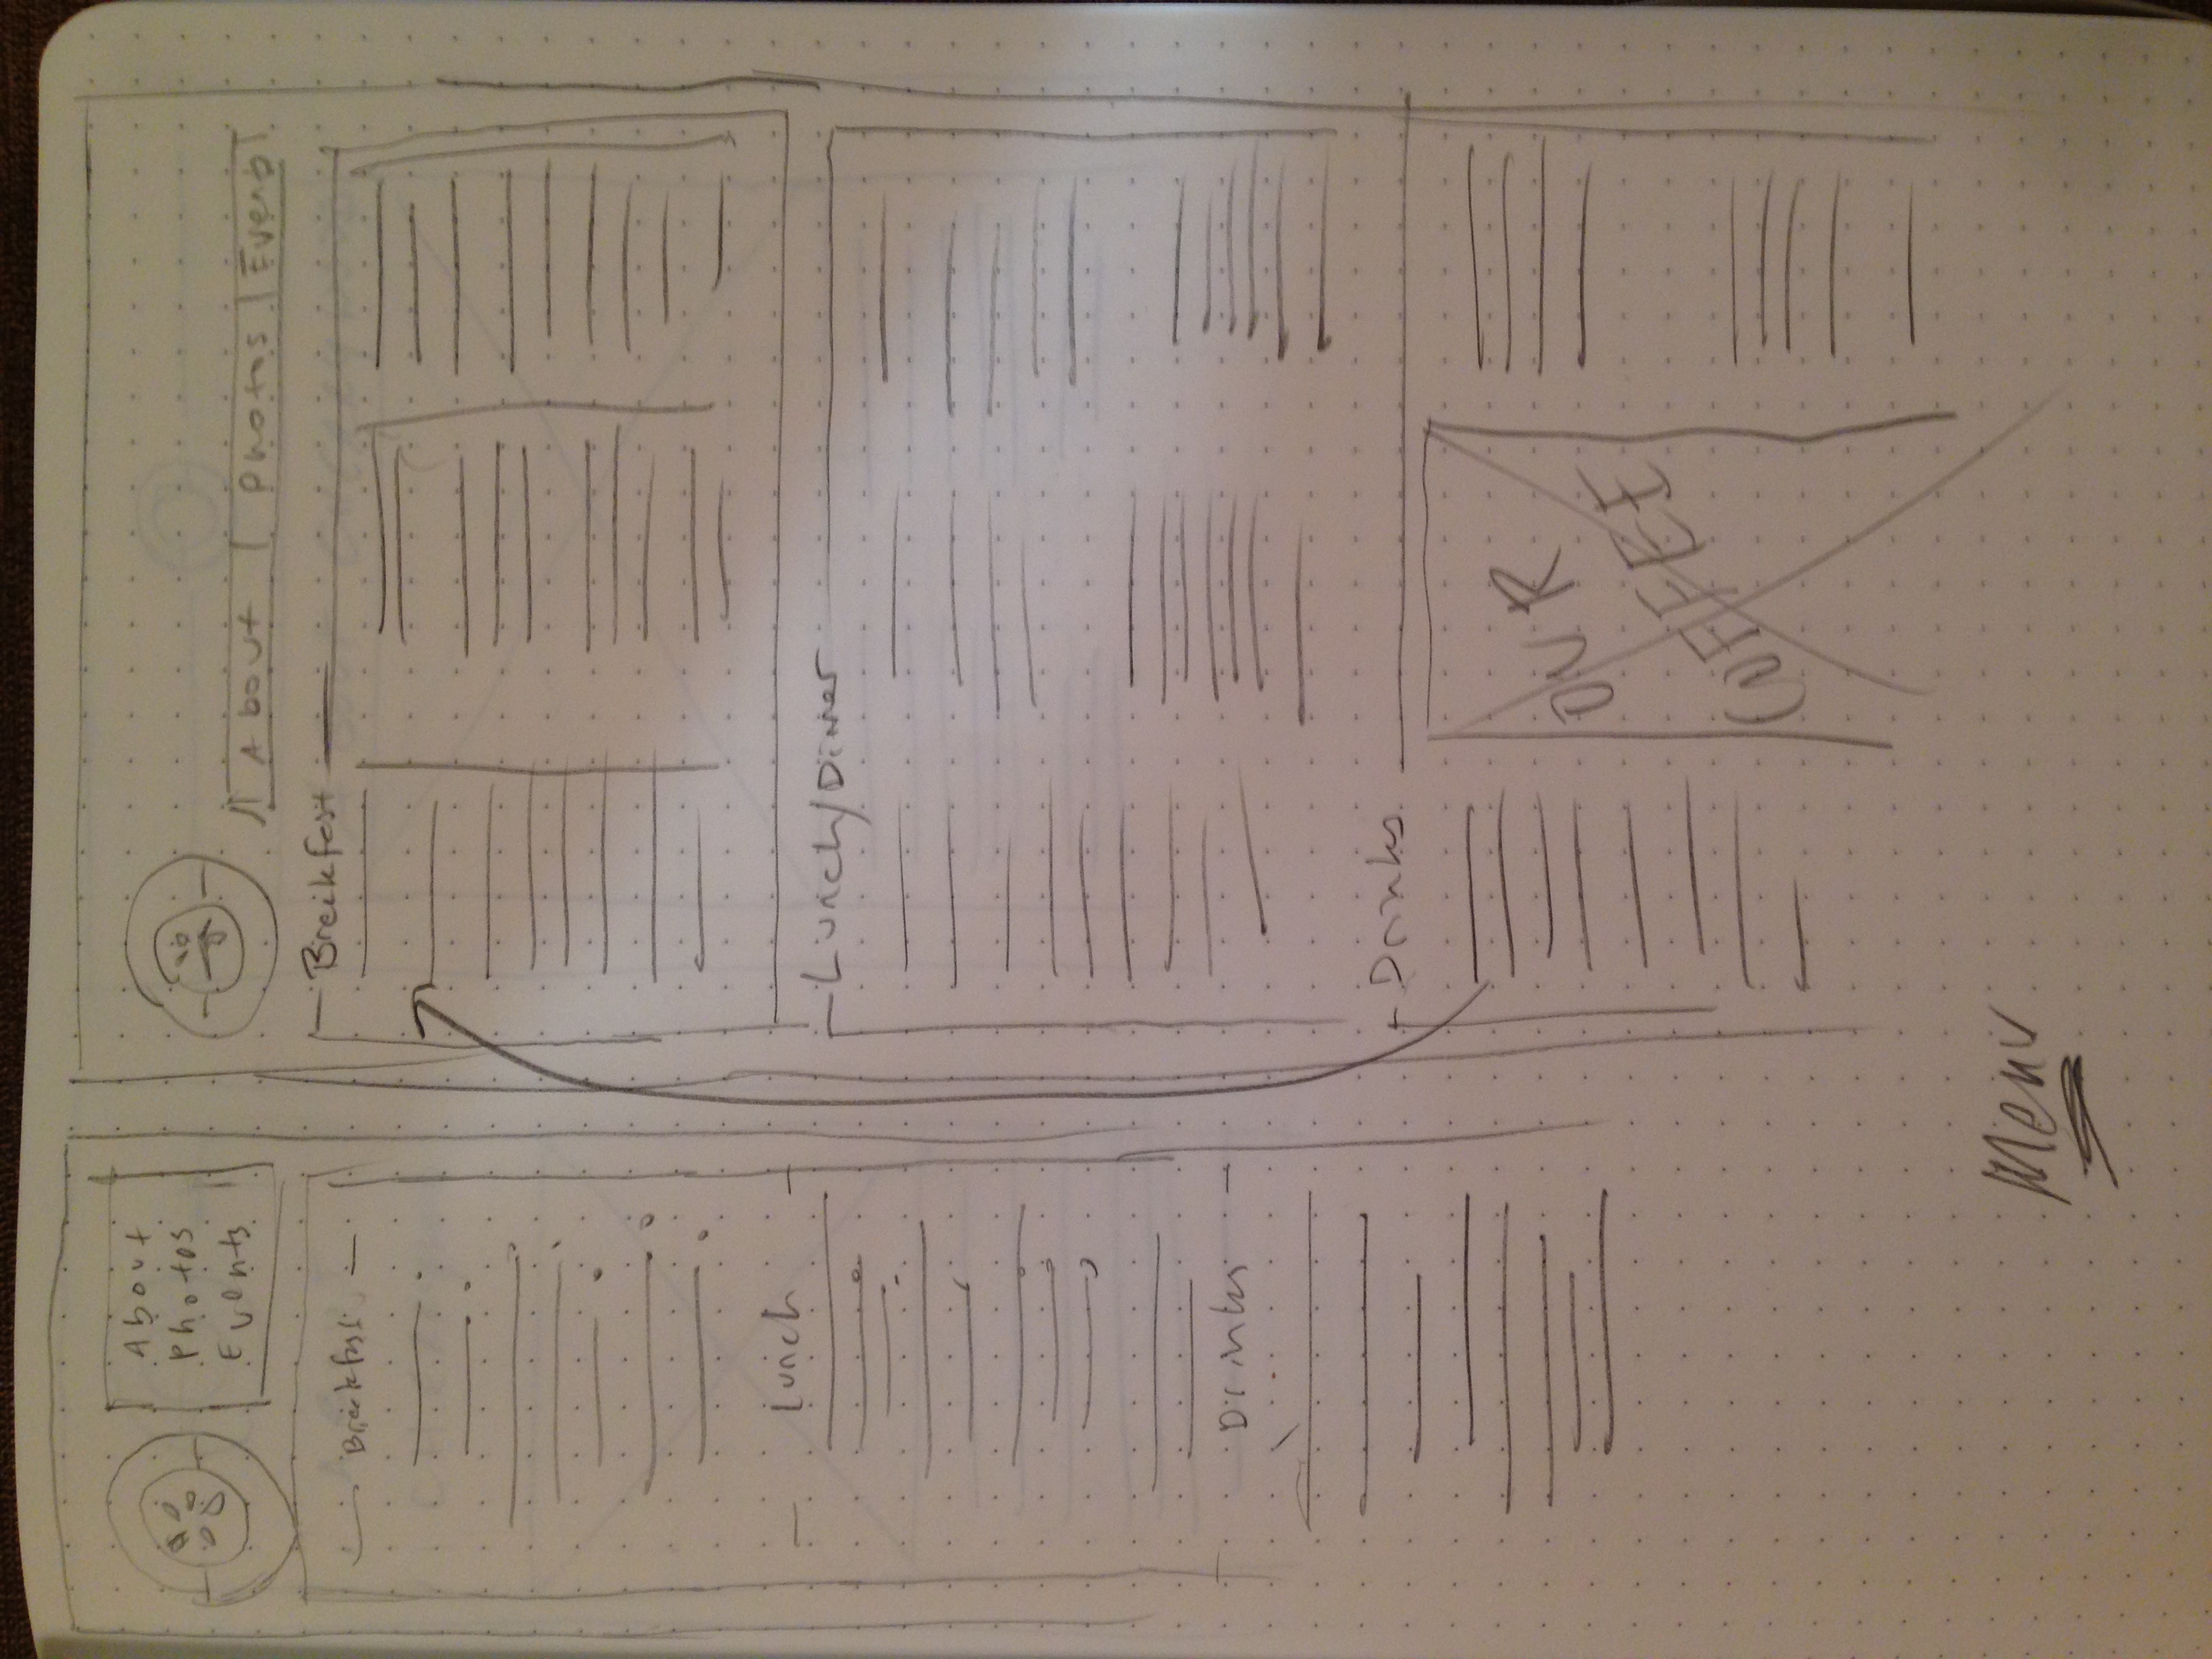 About
Photos
Events
Breikfast
Lunch
Drinks
About | Photos | Events
Breikfest
Lunch/Dinner
Drinks
OUR
COFFEE
Menu